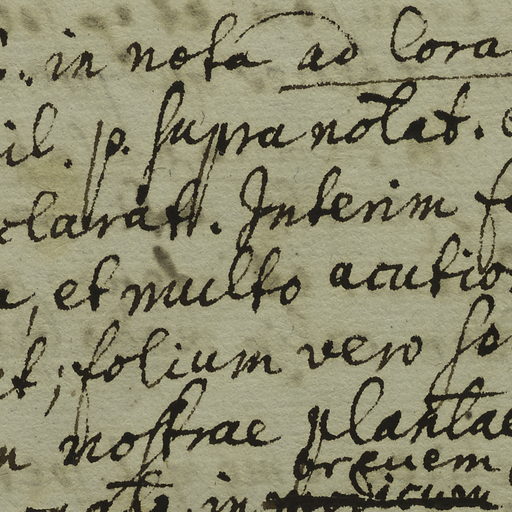 in nota ad Cora
il. p. supra notat.
clarat. Interim f
a, et multo acutio
et; folium vero se
nostrae plantae
breuem
in